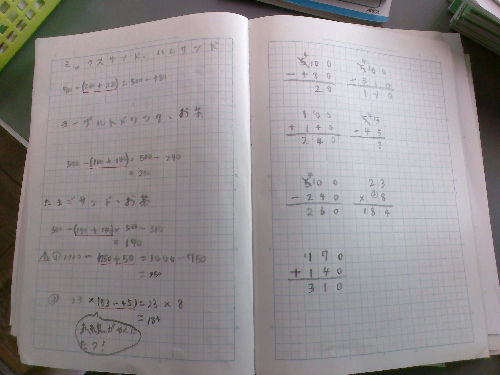 ミックスサンド、ハムサンド
500-(200+280)=500-480
ヨーグルトドリンク、お茶
500-(100+140)=500-240
=260
たまごサンド、お茶
500-(170+140)=500-310
=190
① 1000-(700+50)=1000-750
=250
② 23×(53-45)=23×8
=184
500
-480
20
500
-310
190
100
+140
240
53
-45
8
500
-240
260
23
×8
184
170
+140
310